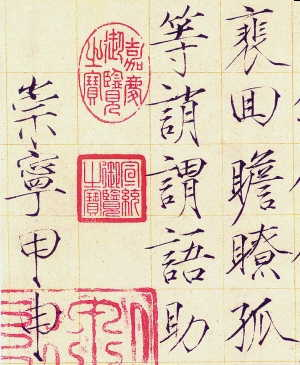 裵囬瞻瞭孤
等誚謂語助
嘉慶
御覽
之寶
宣統
御覽
之寶
崇寧甲申